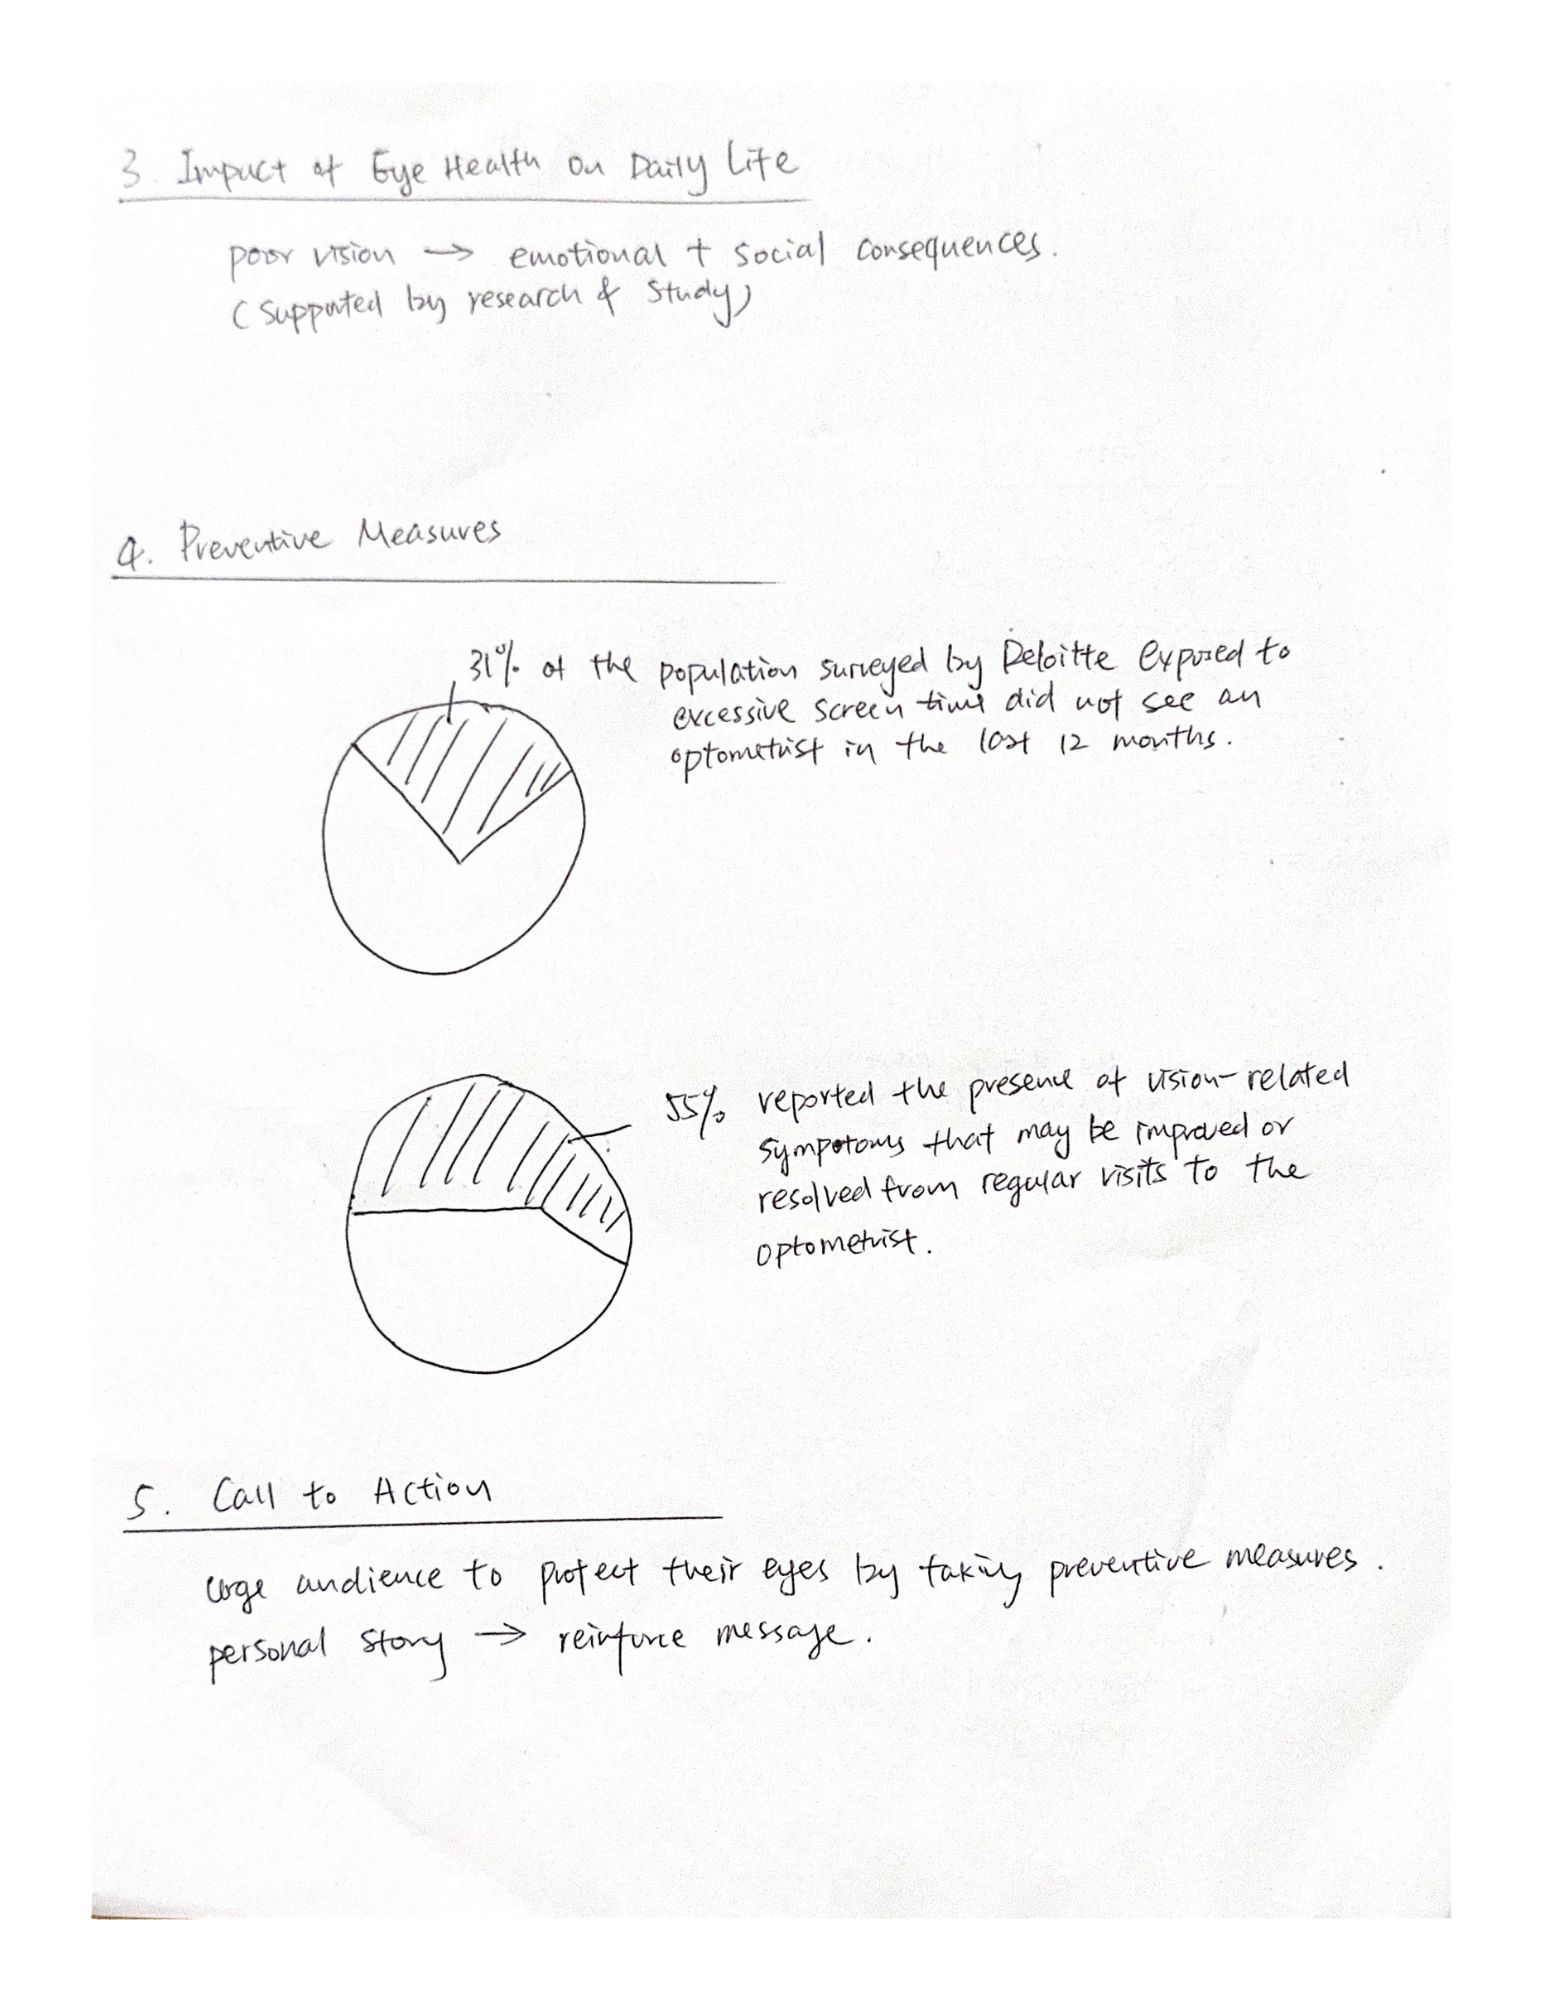 3. Impact of Eye Health on Daily Life
poor vision → emotional + social consequences.
(supported by research & study)
4. Preventive Measures
31% of the population surveyed by Deloitte exposed to
excessive screen time did not see an
optometrist in the last 12 months.
55% reported the presence of vision-related
sympotoms that may be improved or
resolved from regular visits to the
optometrist.
5. Call to Action
urge audience to protect their eyes by taking preventive measures.
personal story → reinforce message.